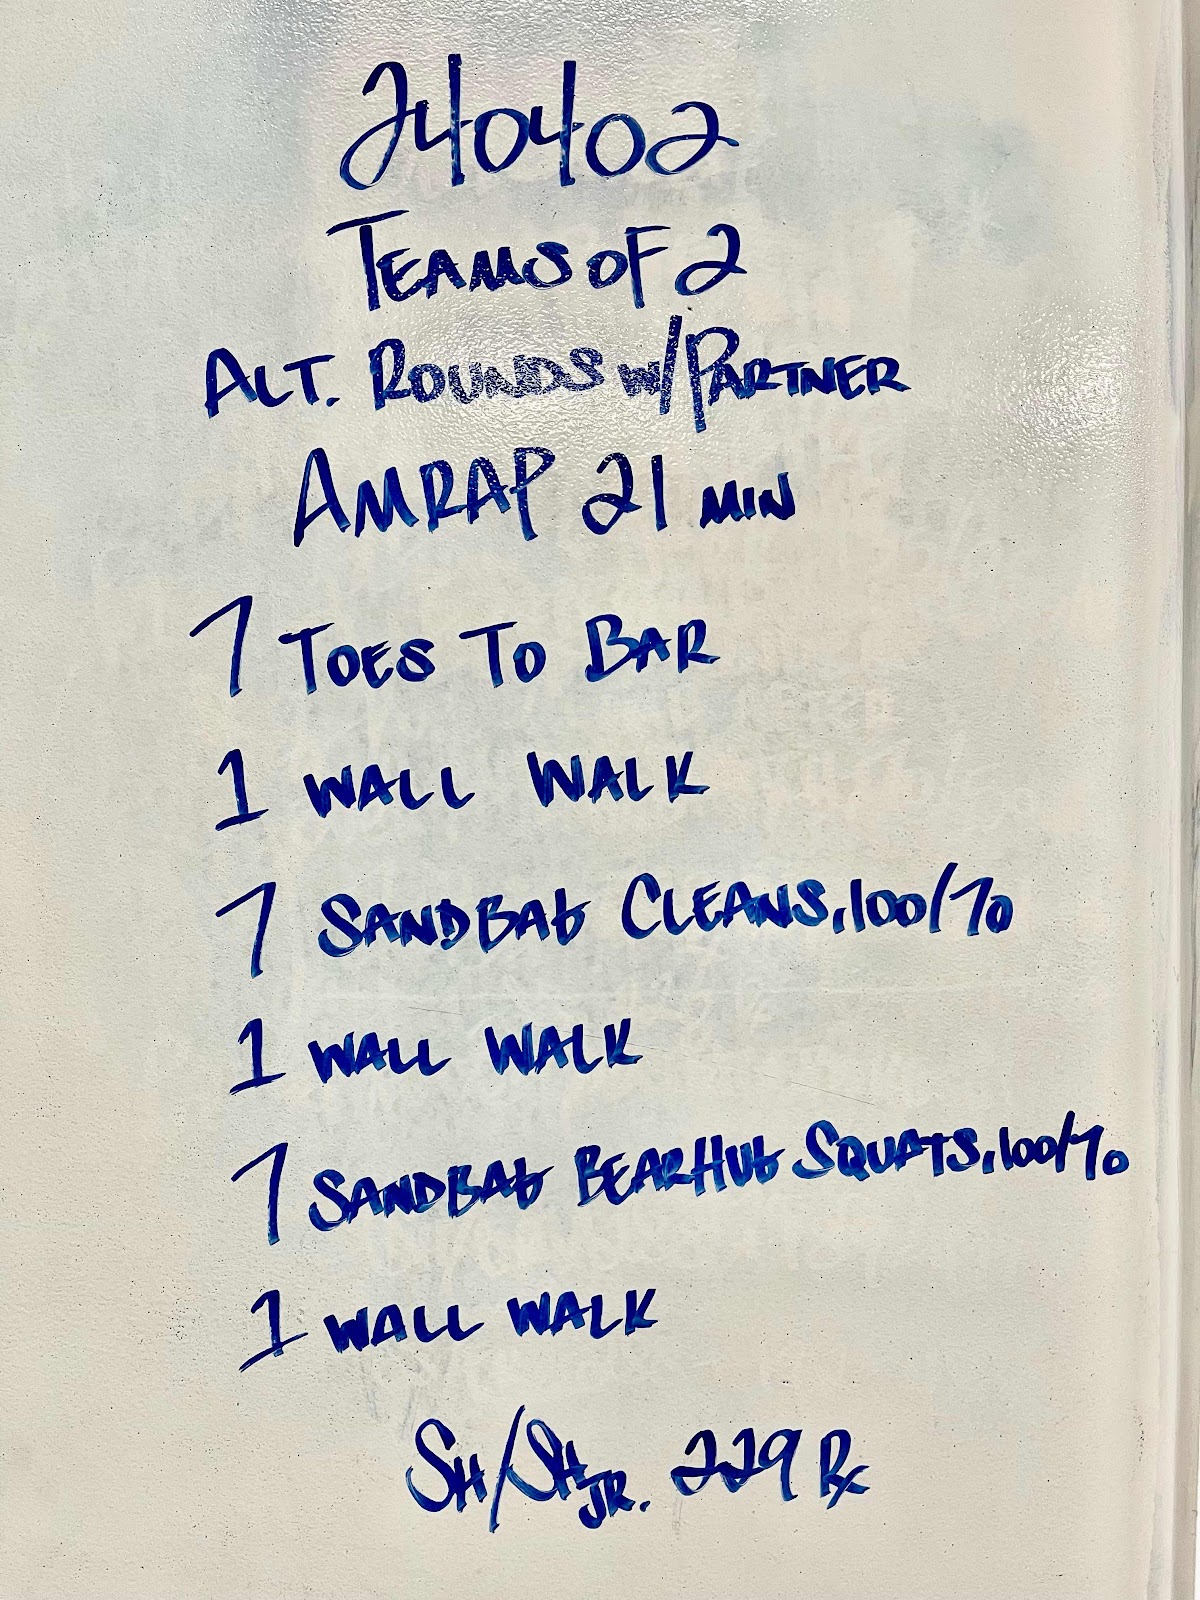 240402
TEAMS OF 2
ALT. ROUNDS W/PARTNER
AMRAP 21 MIN
7 TOES TO BAR
1 WALL WALK
7 SANDBAG CLEANS, 100/70
1 WALL WALK
7 SANDBAG BEARHUG SQUATS, 100/70
1 WALL WALK
SH/SH JR. 229 Rx